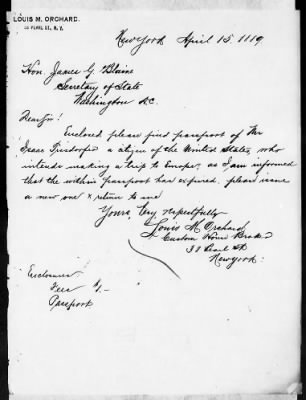 LOUIS M. ORCHARD.
33 PEARL ST., N. Y.
New York April 15. 1889
Hon. James G. Blaine
Secretary of State
Washington D.C.
Dear Sir!
Enclosed please find passport of Mr
Isaac a citizen of the United States, who
intends making a trip to Europe, as I am informed
that the within passport has expired. please issue
a new one & return to me
Yours, very respectfully
Louis M Orchard
Custom House Broker
33 Pearl St
New york.
Enclosures
Fee $1-
Passport